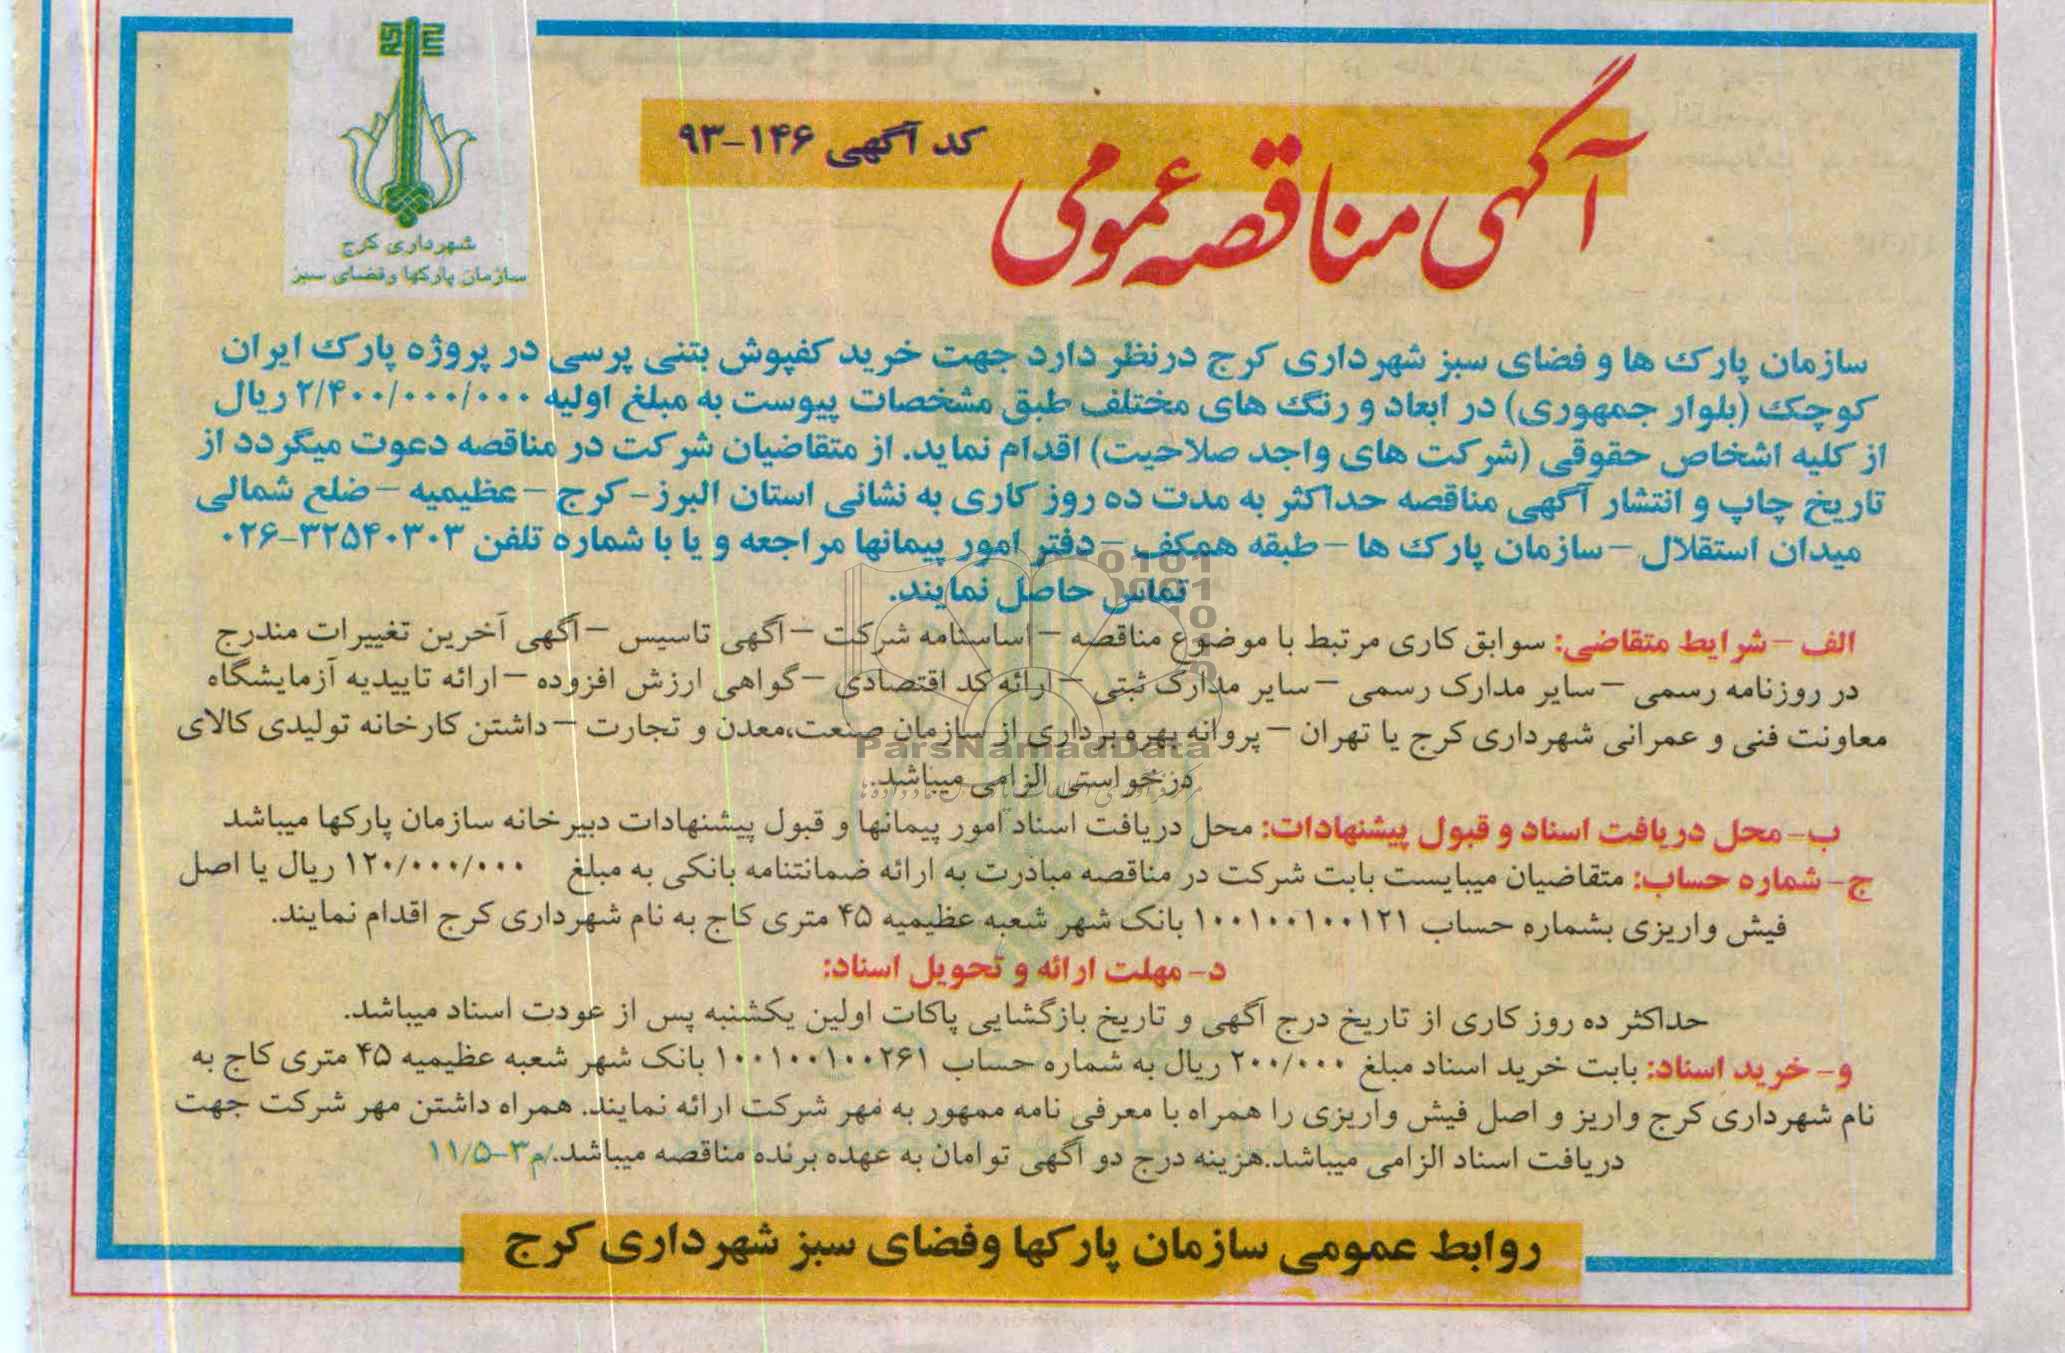 شهرداری کرج
سازمان پارکها وفضای سبز
آگهی مناقصه عمومی
کد آگهی ۱۴۶-۹۳
سازمان پارک ها و فضای سبز شهرداری کرج درنظر دارد جهت خرید کفپوش بتنی پرسی در پروژه پارک ایران
کوچک (بلوار جمهوری) در ابعاد و رنگ های مختلف طبق مشخصات پیوست به مبلغ اولیه ۲/۴۰۰/۰۰۰/۰۰۰ ریال
از کلیه اشخاص حقوقی (شرکت های واجد صلاحیت) اقدام نماید. از متقاضیان شرکت در مناقصه دعوت میگردد از
تاریخ چاپ و انتشار آگهی مناقصه حداکثر به مدت ده روز کاری به نشانی استان البرز- کرج –عظیمیه –ضلع شمالی
میدان استقلال –سازمان پارک ها –طبقه همکف –دفتر امور پیمانها مراجعه و یا با شماره تلفن ۳۲۵۴۰۳۰۳-۰۲۶
تماس حاصل نمایند.
الف –شرایط متقاضی: سوابق کاری مرتبط با موضوع مناقصه –اساسنامه شرکت –آگهی تاسیس –آگهی آخرین تغییرات مندرج
در روزنامه رسمی –سایر مدارک رسمی –سایر مدارک ثبتی –ارائه کد اقتصادی –گواهی ارزش افزوده –ارائه تاییدیه آزمایشگاه
معاونت فنی و عمرانی شهرداری کرج یا تهران –پروانه بهره برداری از سازمان صنعت،معدن و تجارت –داشتن کارخانه تولیدی کالای
درخواستی الزامی میباشد.
ParsNamadData
ب- محل دریافت اسناد و قبول پیشنهادات: محل دریافت اسناد امور پیمانها و قبول پیشنهادات دبیرخانه سازمان پارکها میباشد
ج- شماره حساب: متقاضیان میبایست بابت شرکت در مناقصه مبادرت به ارائه ضمانتنامه بانکی به مبلغ ۱۲۰/۰۰۰/۰۰۰ ریال یا اصل
فیش واریزی بشماره حساب ۱۰۰۱۰۰۱۰۰۱۲۱ بانک شهر شعبه عظیمیه ۴۵ متری کاج به نام شهرداری کرج اقدام نمایند.
د- مهلت ارائه و تحویل اسناد:
حداکثر ده روز کاری از تاریخ درج آگهی و تاریخ بازگشایی پاکات اولین یکشنبه پس از عودت اسناد میباشد.
و- خرید اسناد: بابت خرید اسناد مبلغ ۲۰۰/۰۰۰ ریال به شماره حساب ۱۰۰۱۰۰۱۰۰۲۶۱ بانک شهر شعبه عظیمیه ۴۵ متری کاج به
نام شهرداری کرج واریز و اصل فیش واریزی را همراه با معرفی نامه ممهور به مهر شرکت ارائه نمایند. همراه داشتن مهر شرکت جهت
دریافت اسناد الزامی میباشد.هزینه درج دو آگهی توامان به عهده برنده مناقصه میباشد./م۳-۱۱/۵
روابط عمومی سازمان پارکها وفضای سبز شهرداری کرج